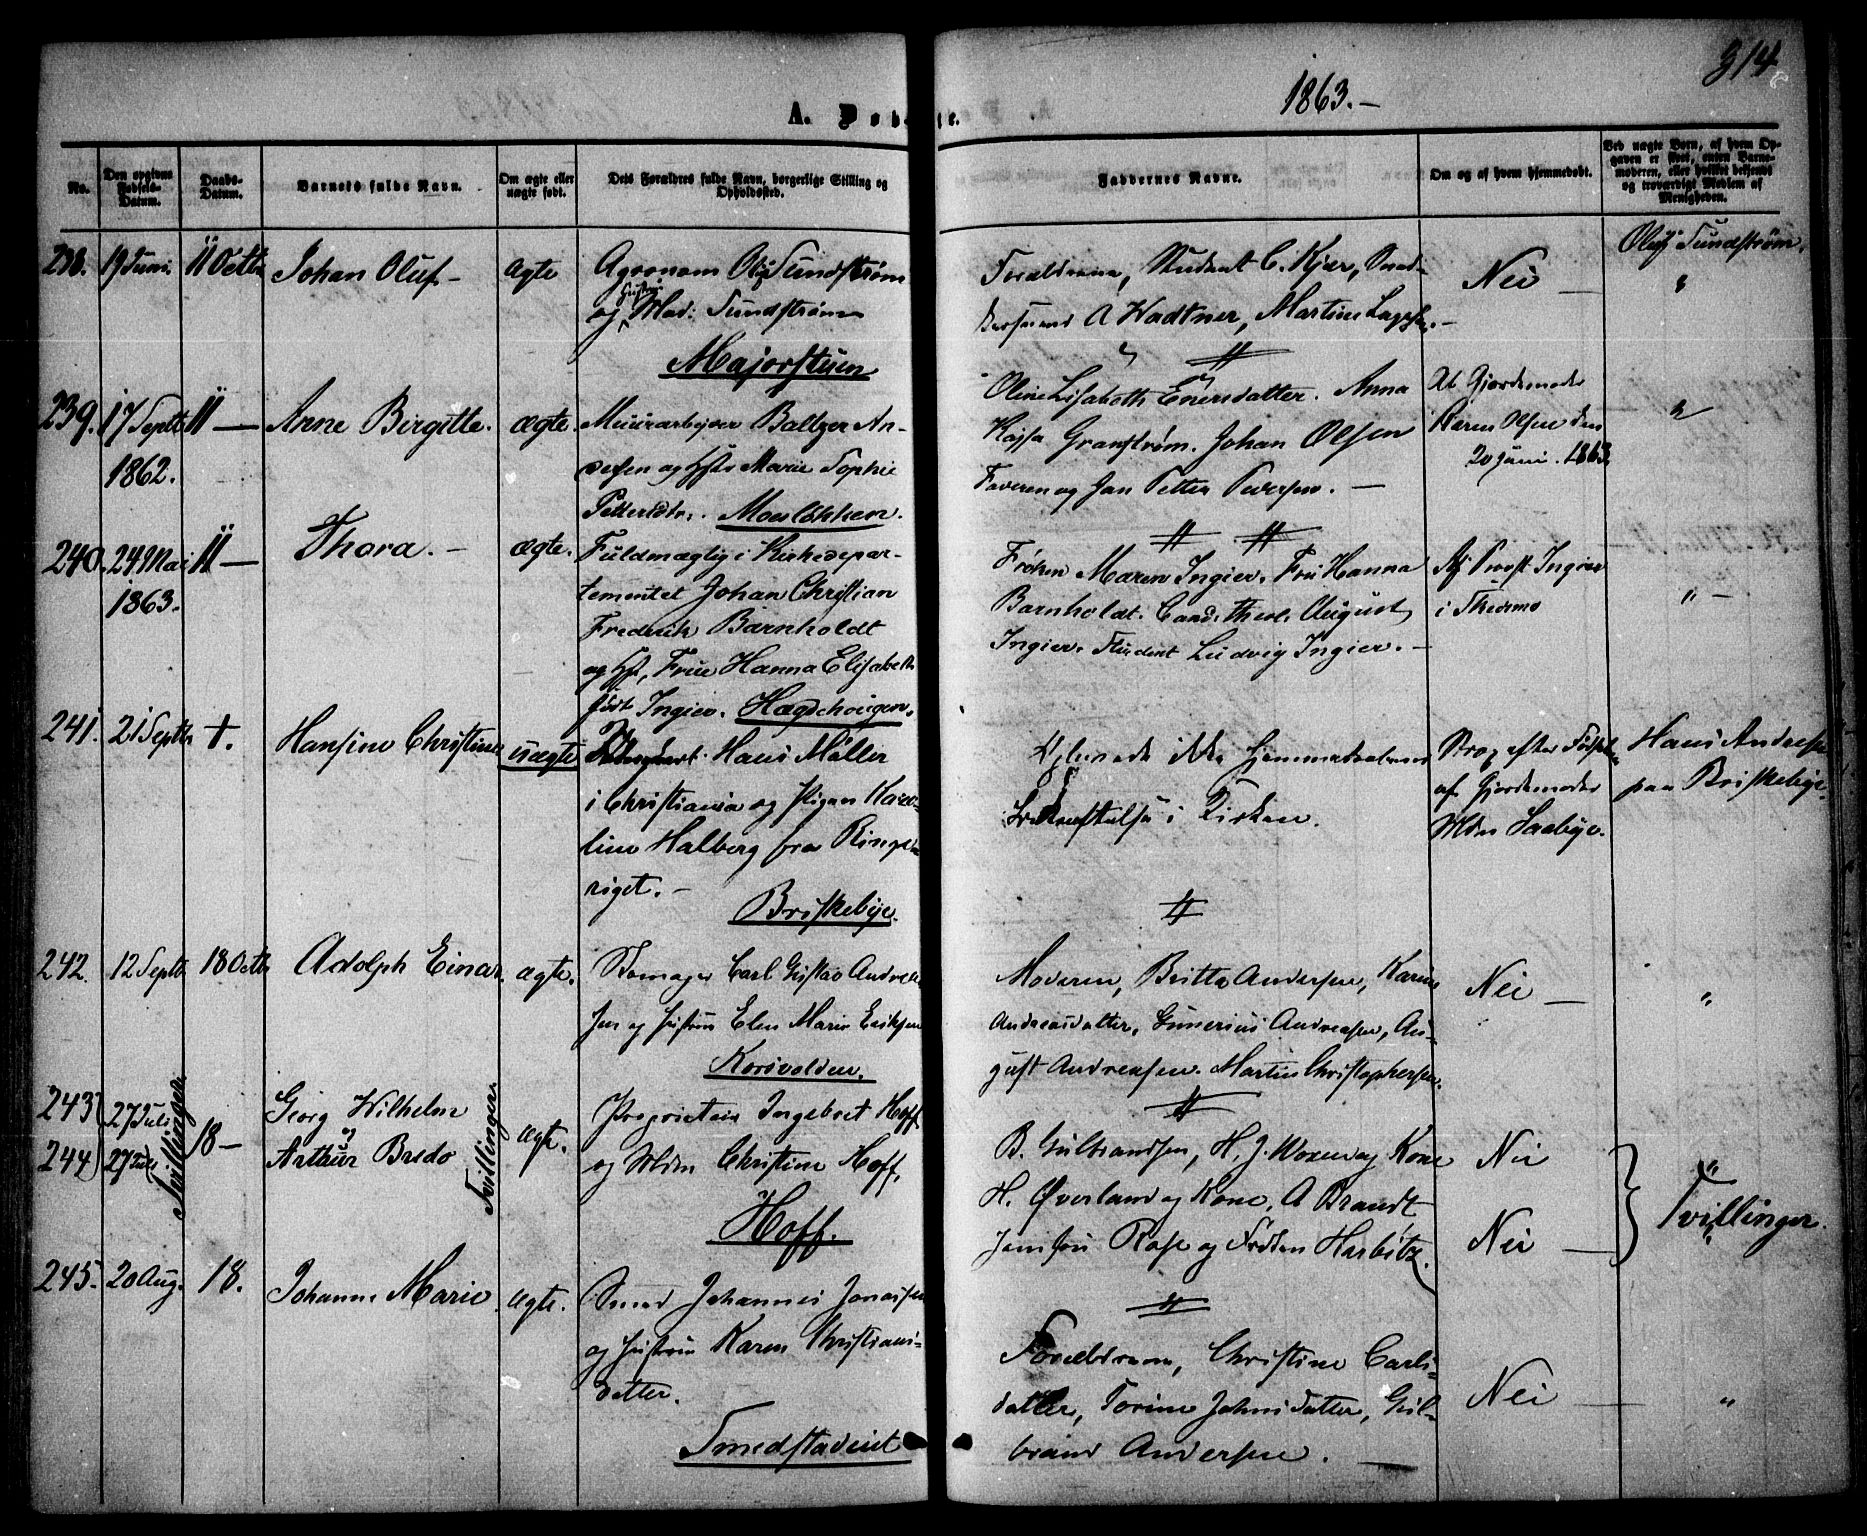 314
1863.-
A. Døbte.
No.
Den opgivne Fødsels-Datum.
Daabs-Datum.
Barnets fulde Navn.
Om ægte eller uægte født.
Dets Forældres fulde Navn, borgerlige Stilling og Opholdssted.
Faddernes Navne.
Om og af hvem hjemmedøbt.
Ved uægte Børn, af hvem Opgaven er skeet, enten Barnemoderen, eller hvilket bekjendt og troværdigt Medlem af Menigheden.
238. 19 Juni. 11 Octb Johan Oluf - ægte
Agronom Oluf Sundstrøm
og Hustru Mad: Sundstrøm
Majorstuen
Forældrene, Student C. Kjær,
A Wadtner, Martine
Nei -
Oluf Sundstrøm.
"
239. 17 Septb 1862. 11 - Anne Birgitte. ægte.
Muurarbejder Baltzer An-
dersen og Hstr Marie Sophie
Pettersdtr. Moesløkken.
Oline Lisabeth Enersdatter. Anna
Kajsa Granstrøm. Johan Olsen
Faderen og Jan Petter Pedersen. -
At Gjordemoder
Karen Olsen den
20 Juni. 1863.
"
240. 24 Mai 1863. 11 - Thora. - ægte.
Fuldmægtig i Kirkedepar-
tementet Johan Christian
Frederik Barnholdt
og Hst, Frue Hanna Elisabeth
født Ingier. Hægdehougen.
Frøken Maren Ingier, Fru Hanna
Barnholdt. Cand. theol. August
Ingier. Student Ludvig Ingier. -
Af Provst Ingier
i Skedsmo
" -
241. 21 Septb +. Hansine Christine uægte
Hans Møller
i Christiania og Pigen Karo-
line Halberg fra Ringe-
riget. -
Briskebye.
ikke Hjemmedaabens
Bekræftelse i Kirken.
Strax efter Fødselen
af Gjordemoder
Mdm Saabye.
Hans Andresen
paa Briskebye.
242. 12 Septb 18 Octb Adolph Einar. ægte.
Skomager Carl Gustav Andrea-
sen og Hustru Elen Marie Eriksen
Korsvolden.
Moderen, Britta Andersen, Karine
Andreasdatter, Gunerius Andreasen, Au-
gust Andreasen. Martin Christophersen.
Nei -
"
243 27 Juli
244 27 Juli
Tvillinger
18 -
Georg Wilhelm
og
Arthur Bredo
Tvillinger
ægte.
Proprietair Ingebret Hoff
og Mdm Christine Hoff.
Hoff.
B. Gulbrandsen, H. J. Woxen og Kone
H. Øverland og Kone, A Brandt
Jomfru Rose og Frøken Harbitz.
Nei
Nei -
"
Tvillinger.
245. 20 Aug. 18. Johanne Marie ægte.
Smed Johannes Jonassen
og Hustru Karen Christians-
datter.
Smedstadeiet
Forældrene, Christine Carls-
datter, Torine Johnsdatter, Gul-
brand Andersen. -
Nei -
"